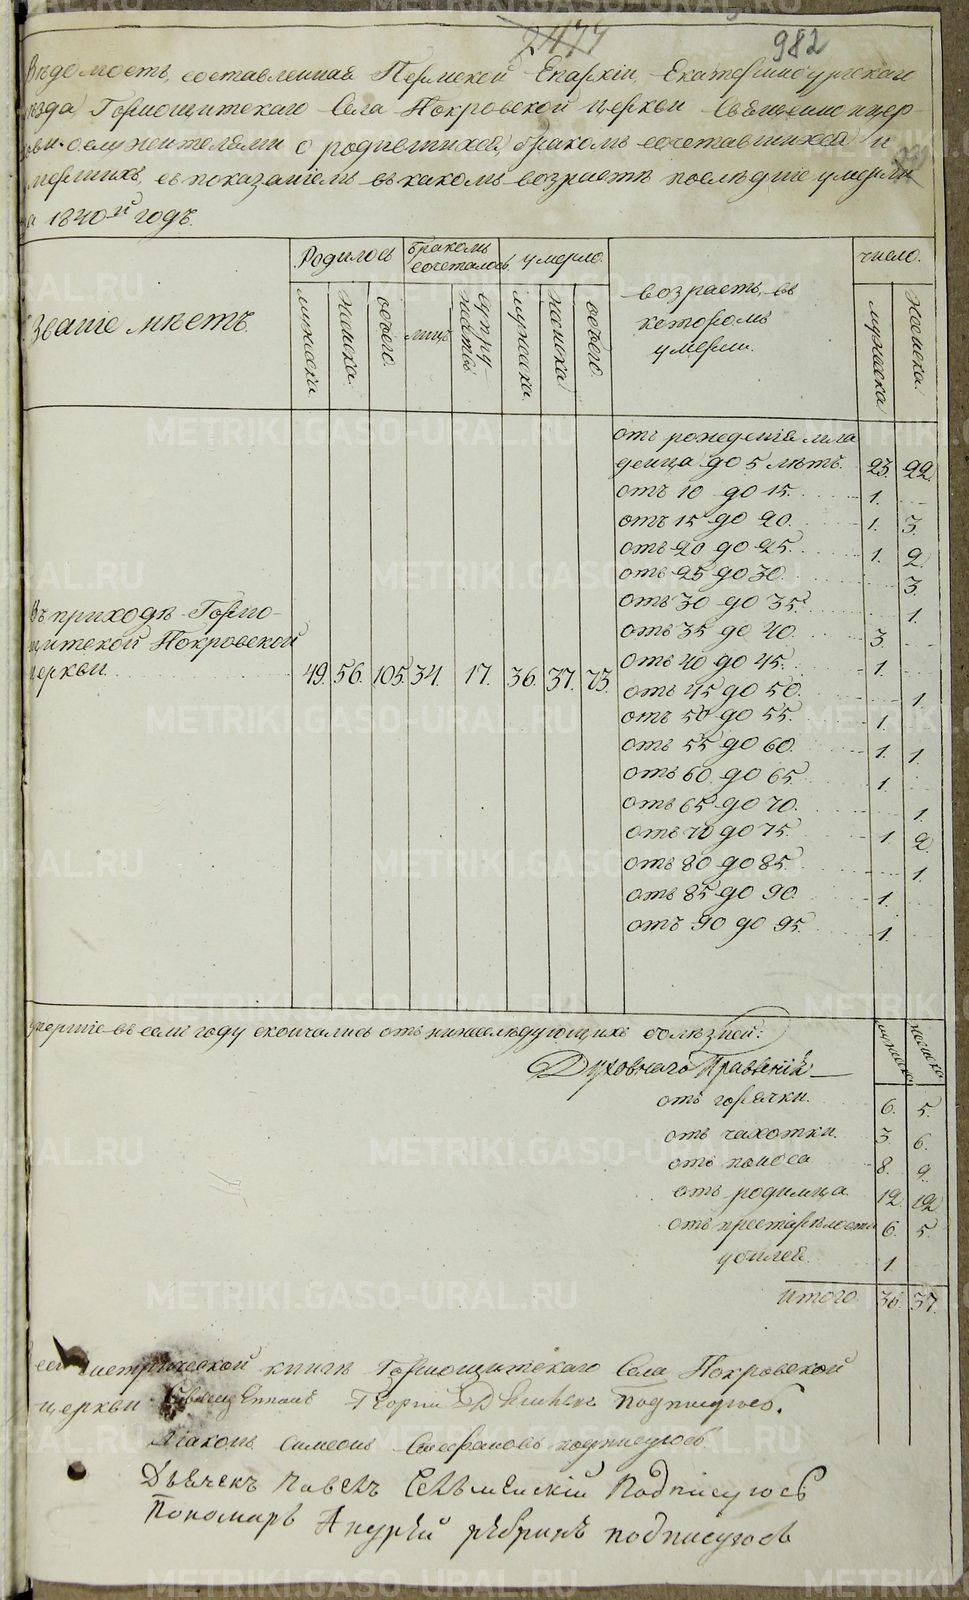 2477 982
Вѣдомость, составленная Пермской Епархіи, Екатеринбургскаго
уѣзда, Горнощитскаго Села Покровской церкви Священноцер
ковно-служителями о родившихся, бракомъ сочетавшихся и
умершихъ, съ показаніемъ въ какомъ возрастѣ послѣдніе умерли
за 1840й годъ.
Званіе мѣстъ. Родилось бракомъ сочеталось умерло. возрастъ, въ которомъ умерли. число.
мужеска женска. обоего. лицъ супружествъ мужеска. женска обоего. мужеска женска.
Въ приходѣ Горно-
щитской Покровской
церкви. 49. 56. 105. 34. 17. 36. 37. 73.
отъ рожденія мла
денца до 5 лѣтъ. 23. 22.
отъ 10 до 15. 1.
отъ 15 до 20. 1. 3.
отъ 20 до 25. 1. 2.
отъ 25 до 30. 3.
отъ 30 до 35. 1.
отъ 35 до 40. 3.
отъ 40 до 45. 1.
отъ 45 до 50. 1.
отъ 50 до 55. 1.
отъ 55 до 60. 1. 1.
отъ 60 до 65. 1.
отъ 65 до 70. 1.
отъ 70 до 75. 1. 2.
отъ 80 до 85. 1.
отъ 85 до 90. 1.
отъ 90 до 95. 1.
умершіе въ семъ году скончались отъ нижеслѣдующихъ болѣзней: мужеска женска
Духовнаго Правленія
отъ горячки. 6. 5.
отъ чахотки. 3. 6.
отъ поноса 8. 9.
отъ родимца. 12. 12
отъ престарѣлости 6. 5.
1.
итого 36. 37.
метрической книгѣ Горнощитскаго Села Покровской
церкви Священникъ Георгій подписуюсь.
Діаконъ Симеонъ Стефановъ подписуюсь
Дьячекъ Павелъ подписуюсь
Пономарь Андрей рѣбринъ подписуюсь
METRIKI.GASO-URAL.RU